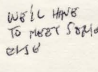 WE'LL HAVE
TO MEET SOME
ELSE